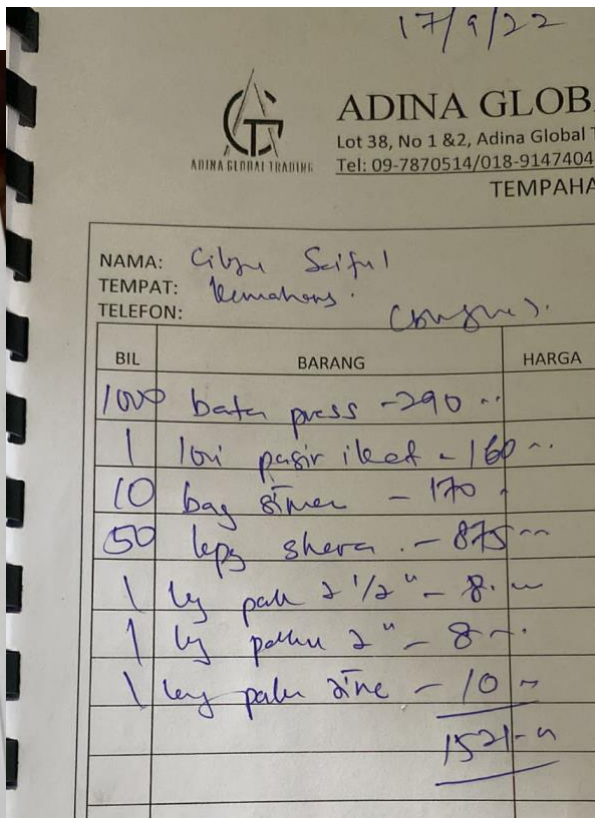 17/9/22
ADINA GLOBAL TRADING
ADINA GLOB
Lot 38, No 1 &2, Adina Global T
Tel: 09-7870514/018-9147404
TEMPAHA
NAMA: Saiful
TEMPAT:
TELEFON:
BIL BARANG HARGA
1000 bata press - 290
1 lori pasir ikat - 160
10 bag simen - 170
50 keps shera - 875
1 kg paku 2 1/2" - 8
1 kg paku 2" - 8
1 kg paku zinc - 10
1521